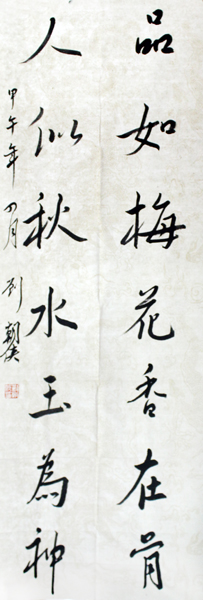 品如梅花香在骨
人似秋水玉為神
甲午年四月 刘朝侠